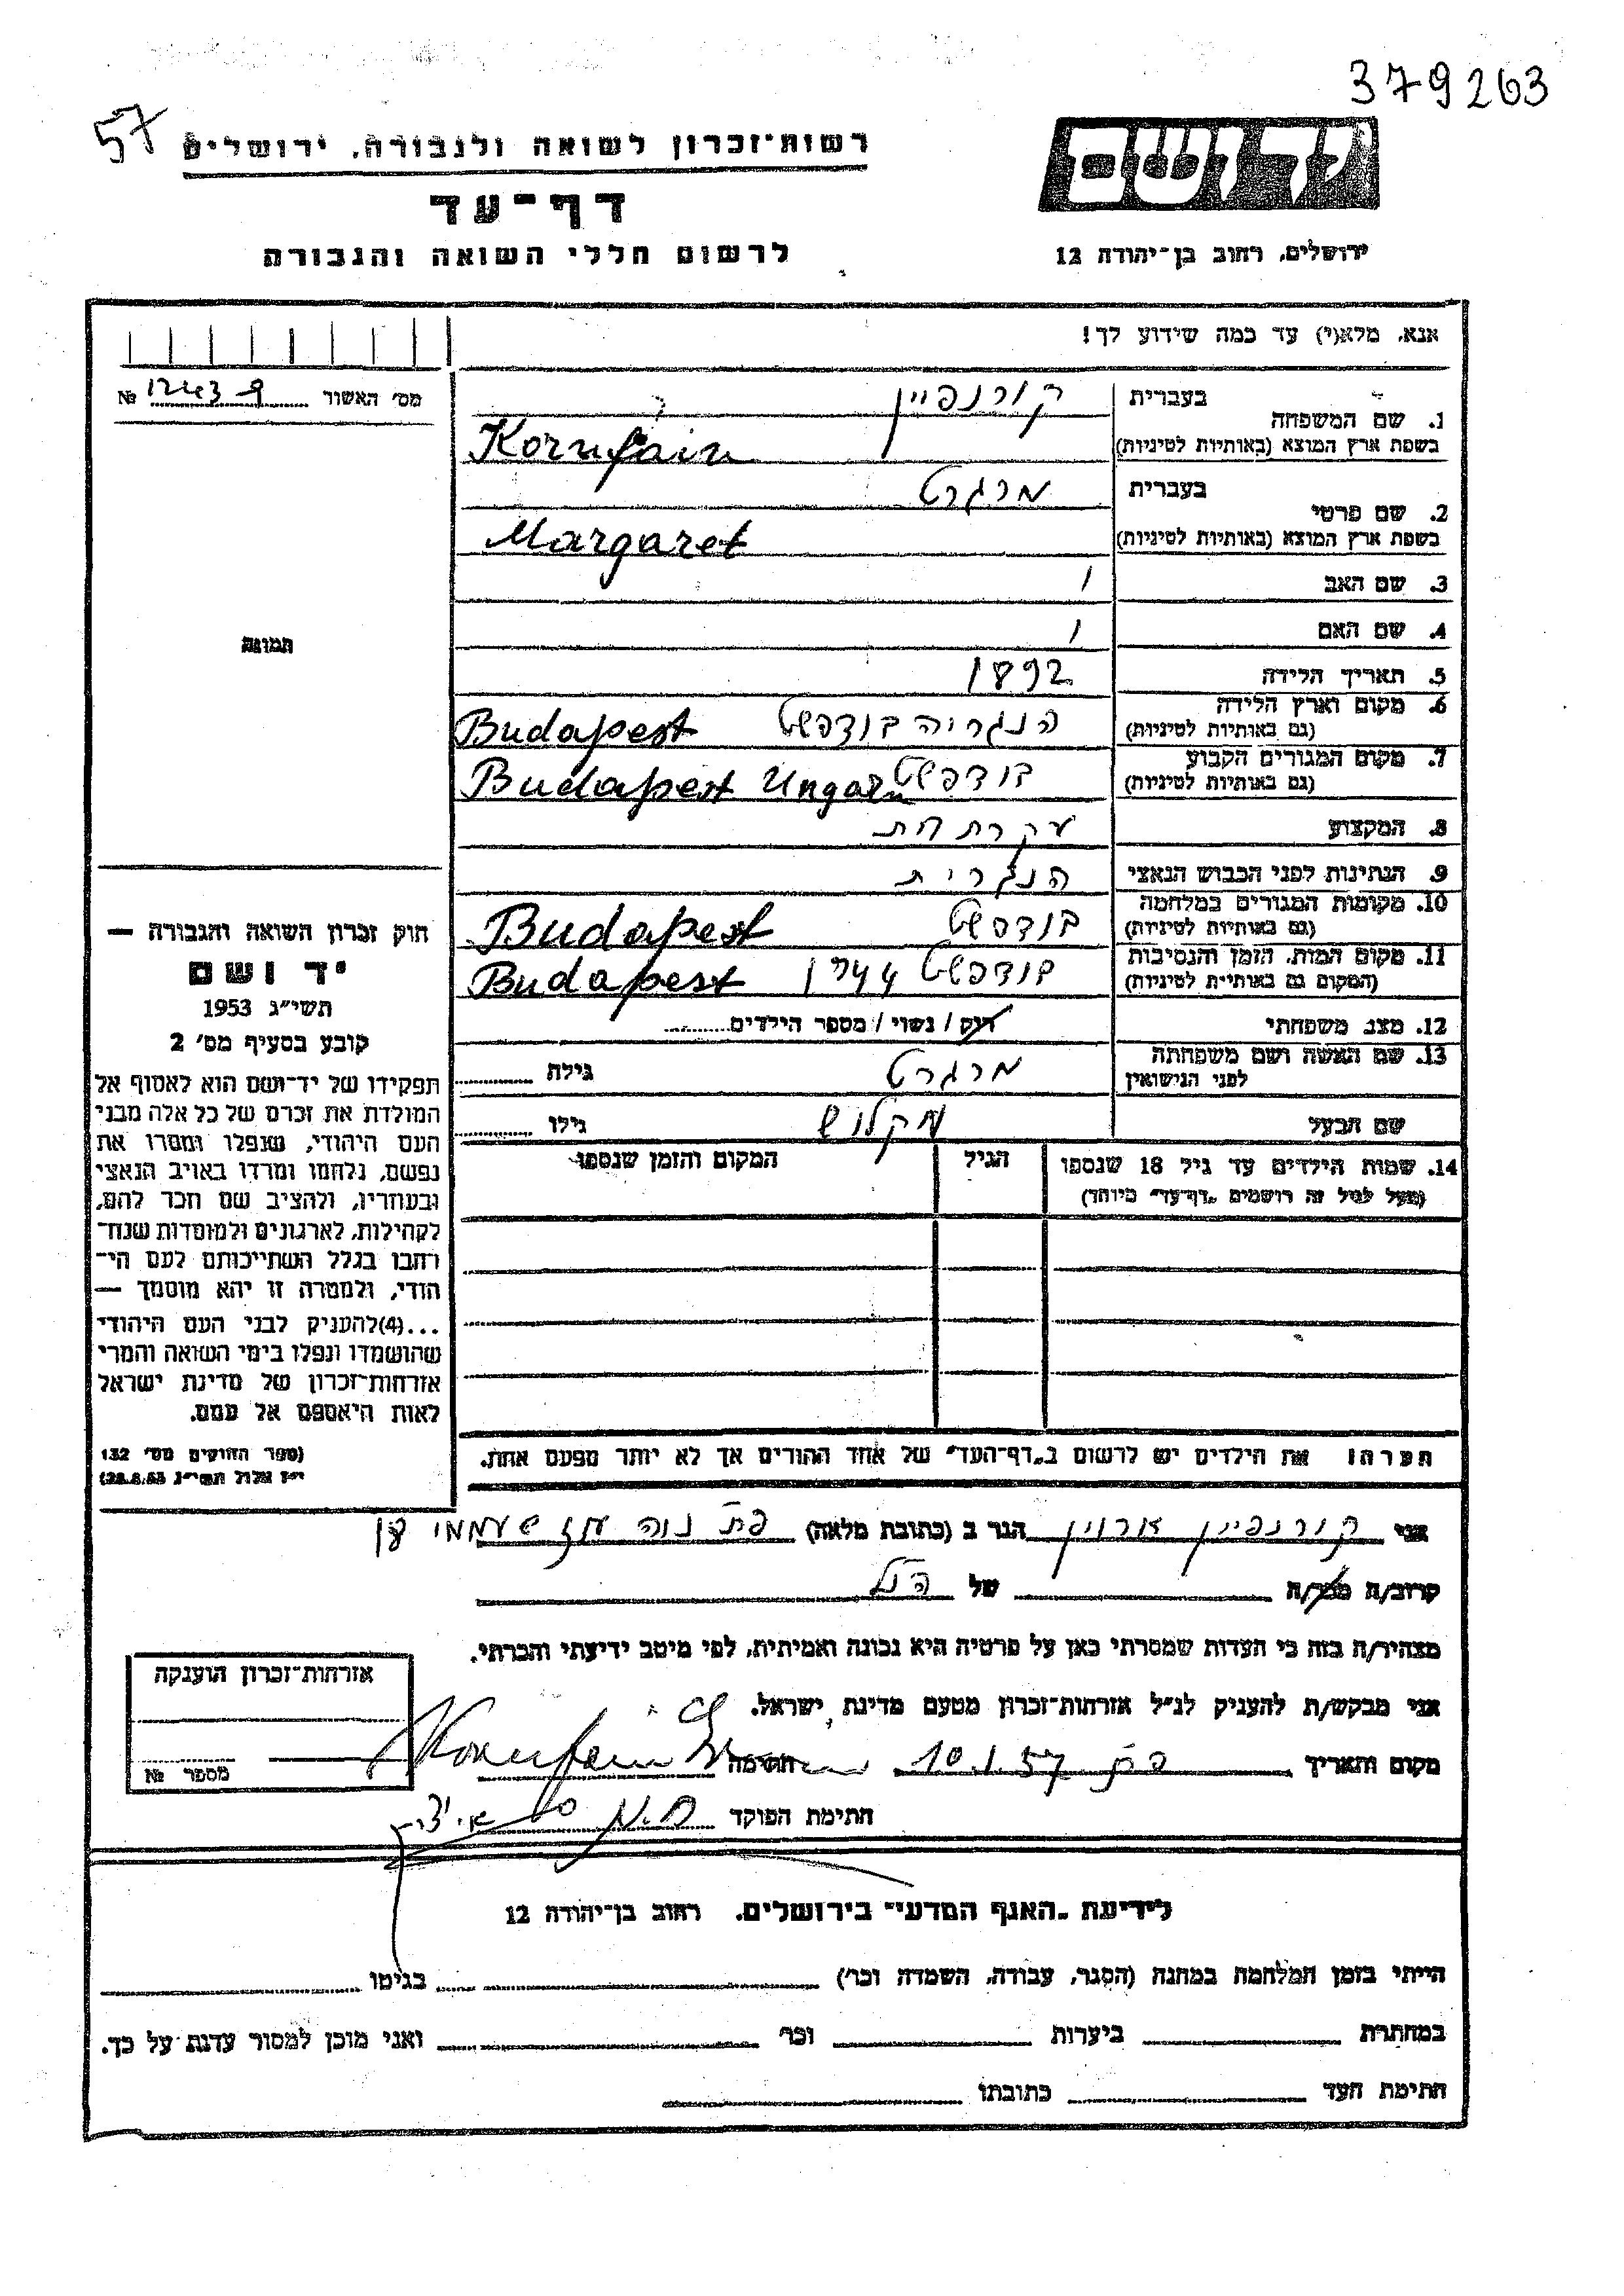 379263
57
רשות־זכרון לשואה ולגבורה, ירושלים
דף־עד
לרשום חללי השואה והגבורה
יד ושם
ירושלים, רחוב בן־יהודה 12
אנא, מלא(י) עד כמה שידוע לך!
מס׳ האשור № 12439
1. שם המשפחה
בעברית קורנפיין
בשפת ארץ המוצא (באותיות לטיניות) Kornfain
2. שם פרטי
בעברית מרגרט
בשפת ארץ המוצא (באותיות לטיניות) Margaret
3. שם האב /
4. שם האם /
5. תאריך הלידה 1892
6. מקום וארץ הלידה (גם באותיות לטיניות) הנגריה בודפשט Budapest
7. מקום המגורים הקבוע (גם באותיות לטיניות) בודפשט Budapest Ungarn
8. המקצוע עקרת בית
9. הנתינות לפני הכבוש הנאצי הנגרית
10. מקומות המגורים במלחמה (גם באותיות לטיניות) בודפשט Budapest
11. מקום המות, הזמן והנסיבות (המקום גם באותיות לטיניות) בודפשט 1944 Budapest
12. מצב משפחתי רווק / נשוי / מספר הילדים
13. שם האשה ושם משפחתה לפני הנישואין מרגרט גילה
שם הבעל מקלוש גילו
14. שמות הילדים עד גיל 18 שנספו הגיל המקום והזמן שנספו
(מעל לגיל זה רושמים „דף־עד״ מיוחד)
תמונה
חוק זכרון השואה והגבורה —
יד ושם
תשי״ג 1953
קובע בסעיף מס׳ 2
תפקידו של יד־ושם הוא לאסוף אל
המולדת את זכרם של כל אלה מבני
העם היהודי, שנפלו ומסרו את
נפשם, נלחמו ומרדו באויב הנאצי
ובעוזריו, ולהציב שם וזכר להם,
לקהילות, לארגונים ולמוסדות שנח־
רבו בגלל השתייכותם לעם הי־
הודי, ולמטרה זו יהא מוסמך —
...(4) להעניק לבני העם היהודי
שהושמדו ונפלו בימי השואה והמרי
אזרחות־זכרון של מדינת ישראל
לאות היאספם אל עמם.
(ספר החוקים מס׳ 132
י״ז אלול תשי״ג 28.8.53)
הערה: את הילדים יש לרשום ב„דף־העד״ של אחד ההורים אך לא יותר מפעם אחת.
אני קורנפיין ארוין הגר ב (כתובת מלאה) פת נוה עוז
קרוב/ה מכר/ה של הנ״ל
מצהיר/ה בזה כי העדות שמסרתי כאן על פרטיה היא נכונה ואמיתית, לפי מיטב ידיעתי והכרתי.
אני מבקש/ת להעניק לנ״ל אזרחות־זכרון מטעם מדינת ישראל.
מקום ותאריך 10.1.57 חתימה Kornfain
חתימת הפוקד
אזרחות־זכרון הוענקה
מספר №
לידיעת „האגף המדעי״ בירושלים, רחוב בן־יהודה 12
הייתי בזמן המלחמה במחנה (הסגר, עבודה, השמדה וכר׳) בגיטו
במחתרת ביערות וכר׳ ואני מוכן למסור עדות על כך.
חתימת העד כתובתו